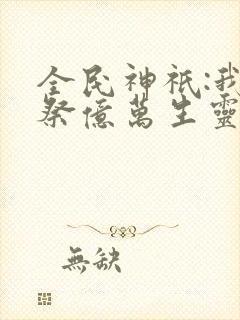 全民神祇:我
祭億萬生靈
無缺